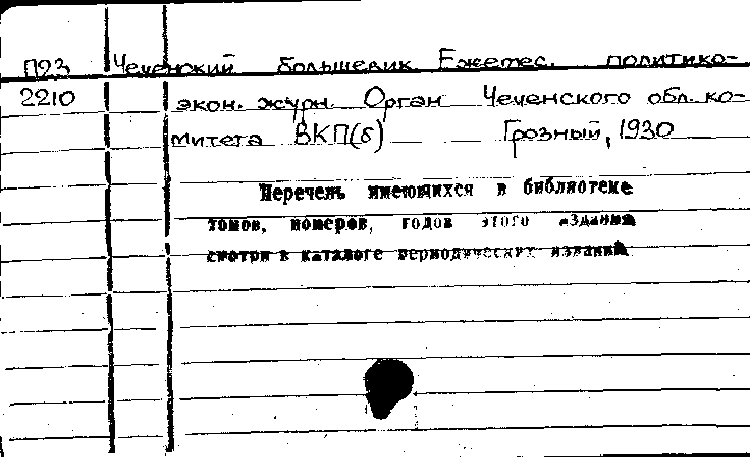 П23 Чеченский большевик. Ежемес. политико-
2210 экон. журн. Орган Чеченского обл. ко-
митета ВКП(б) Грозный, 1930
Перечень имеющихся в библиотеке
томов, номеров, годов этого издания
смотри в каталоге периодических изданий